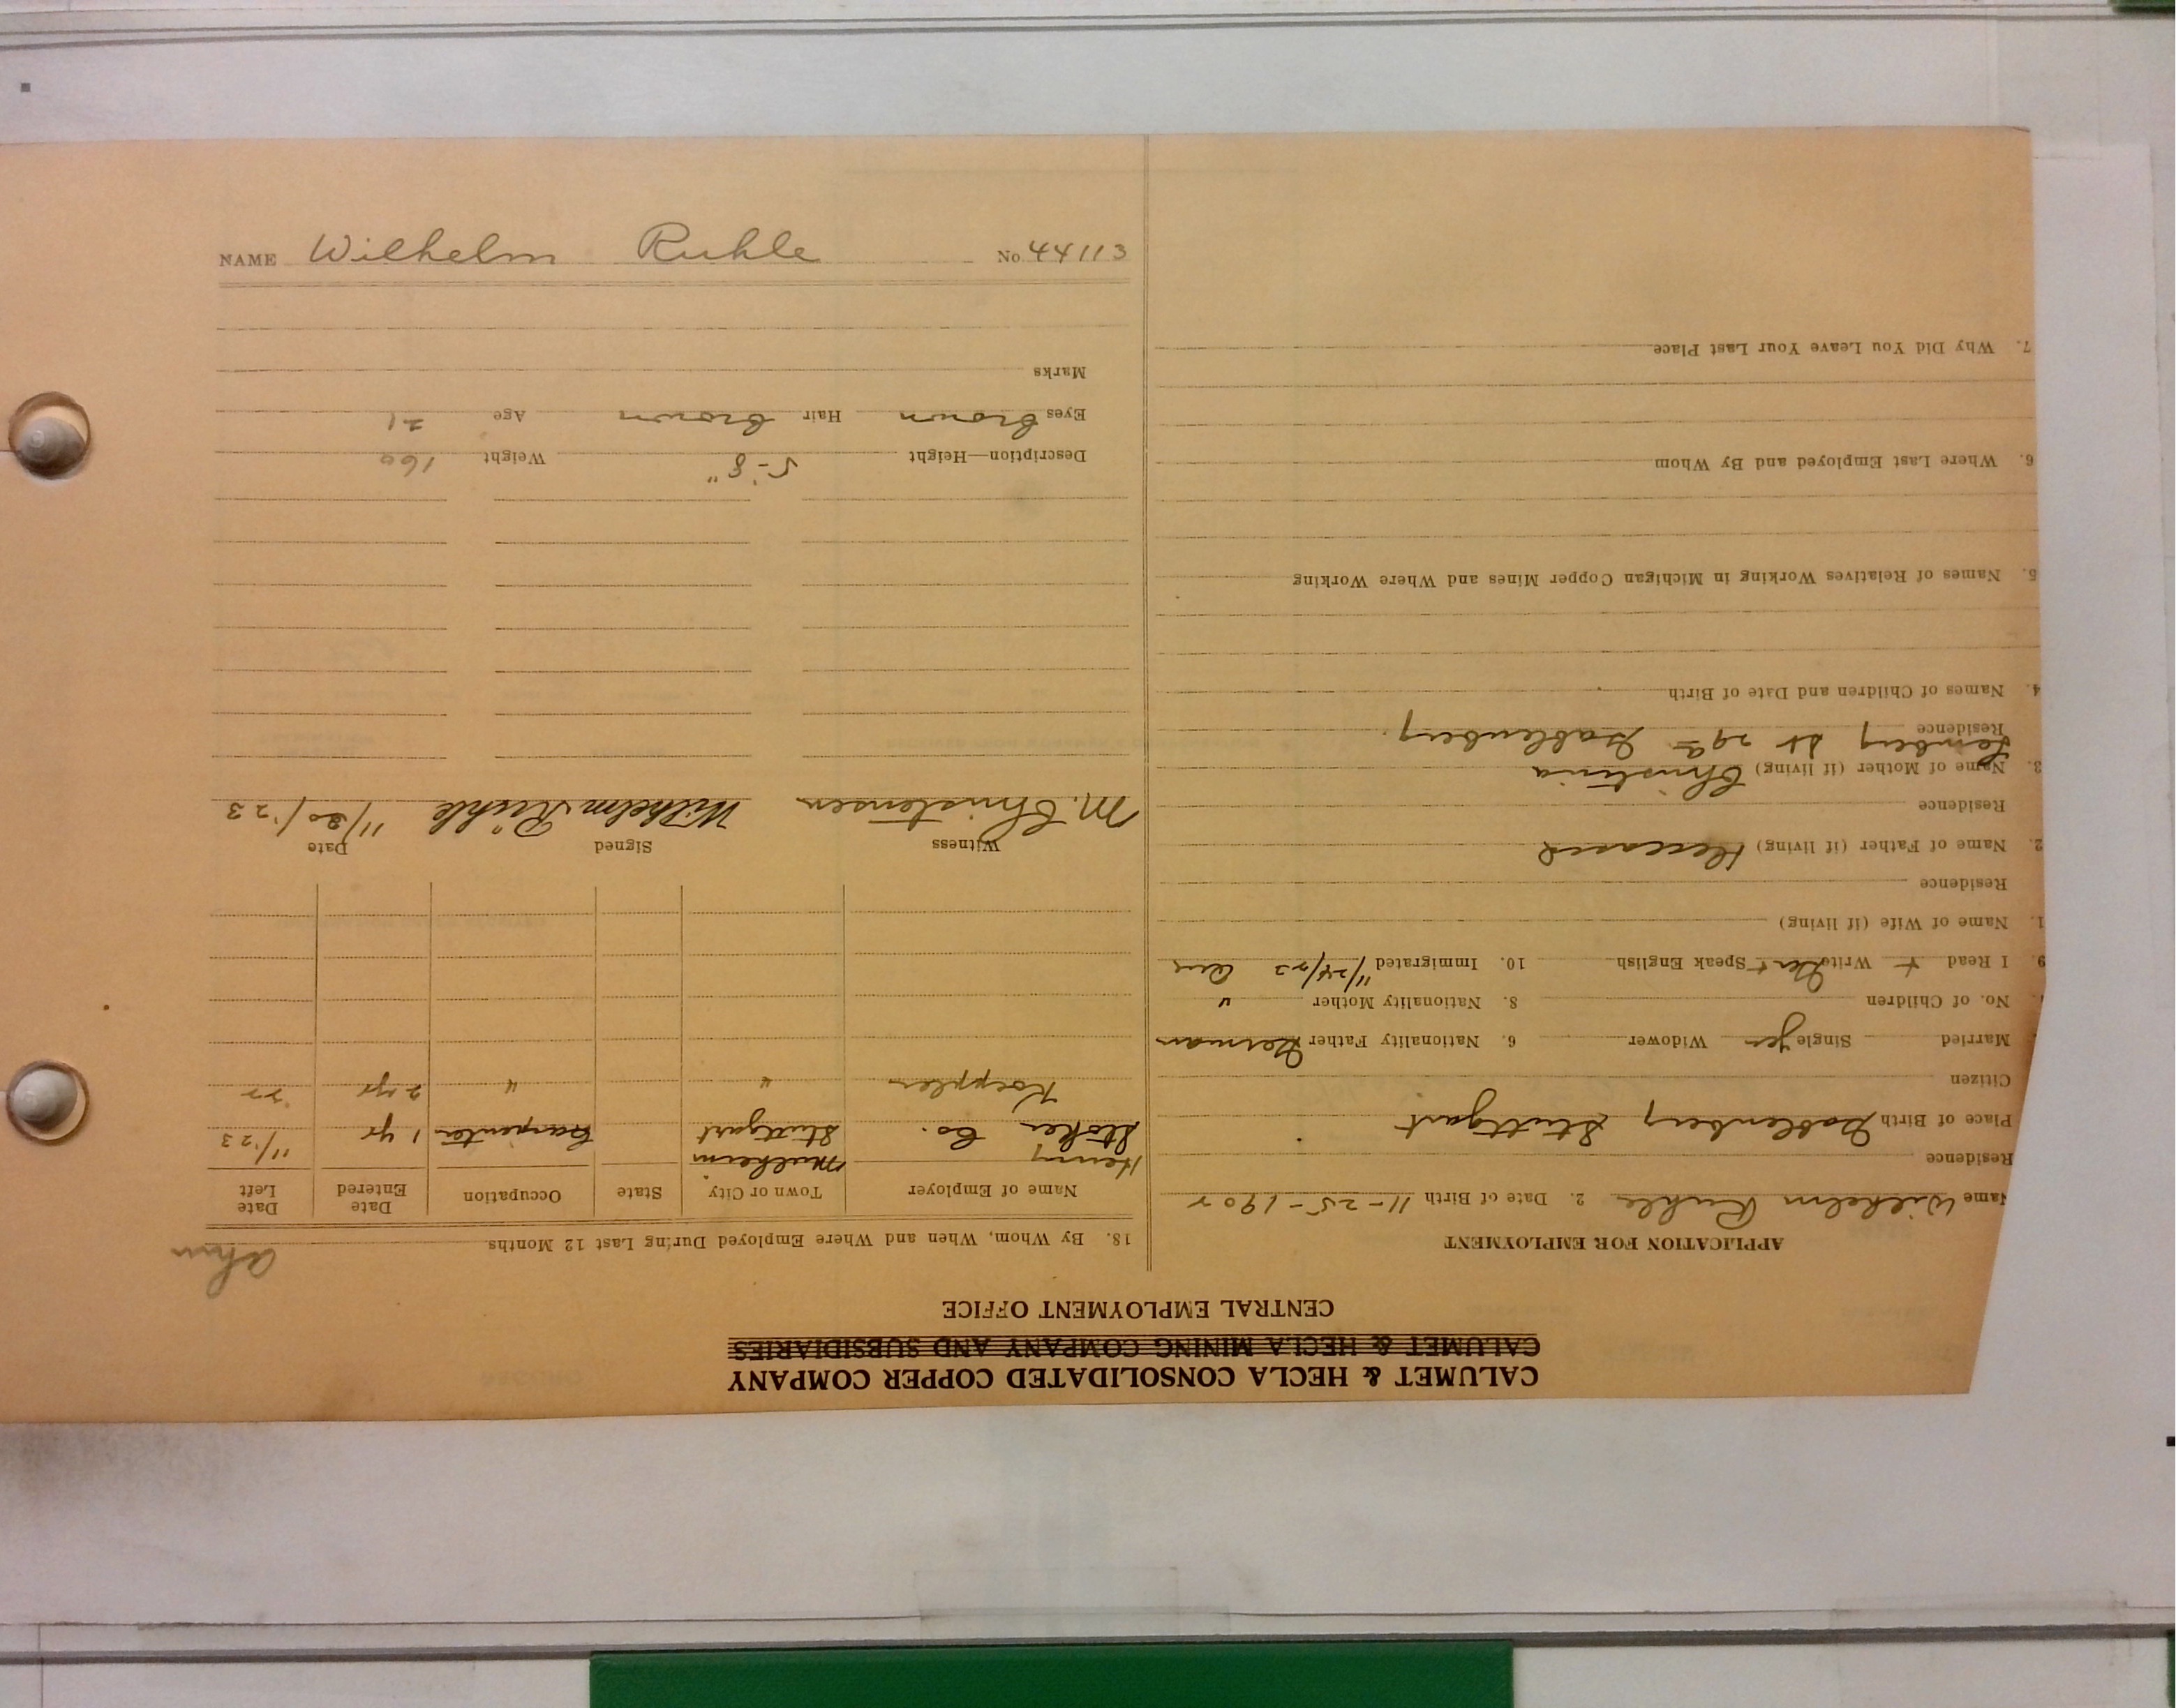 CALUMET & HECLA CONSOLIDATED COPPER COMPANY
CALUMET & HECLA MINING COMPANY AND SUBSIDIARIES
CENTRAL EMPLOYMENT OFFICE
APPLICATION FOR EMPLOYMENT
Name Wilhelm Ruhle 2. Date of Birth 11-25-1902
Residence
Place of Birth Gablenberg Stuttgart
Citizen
Married Single yes Widower 6. Nationality Father German
No. of Children 8. Nationality Mother "
9. I Read + Write Speak English 10. Immigrated 11/24/23
1. Name of Wife (if living)
Residence
2. Name of Father (if living) Deceased
Residence
3. Name of Mother (if living) Christina
Residence Lemberg St 29a Gablenberg
4. Names of Children and Date of Birth
5. Names of Relatives Working in Michigan Copper Mines and Where Working
6. Where Last Employed and By Whom
7. Why Did You Leave Your Last Place
18. By Whom, When and Where Employed During Last 12 Months
Name of Employer Town or City State Occupation Date Entered Date Left
Henry Mulheim
Stoker Co. Stuttgart Carpenter 1 yr 11/'23
Koeppler " " 2 yr '22
Witness Signed Date
M. Christensen Wilhelm Rühle 11/30/'23
Description—Height 5'-8" Weight 160
Eyes Brown Hair Brown Age 21
Marks
NAME Wilhelm Ruhle No 44113